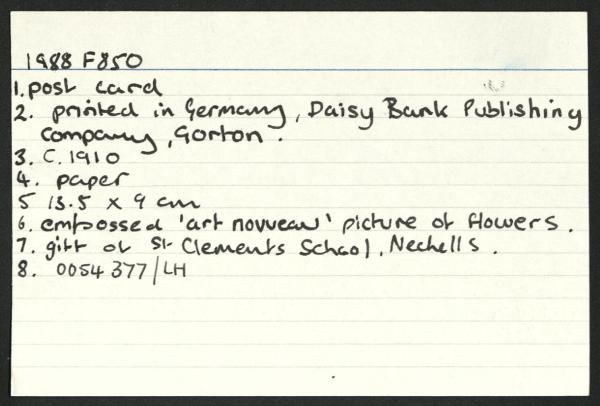 1988 F850
1. post card
2. printed in Germany, Daisy Bank Publishing
Company, Gorton.
3. C. 1910
4. paper
5 13.5 x 9 cm
6. embossed 'art nouveau' picture of flowers.
7. gift of St Clements School, Nechells.
8. 0054377/LH